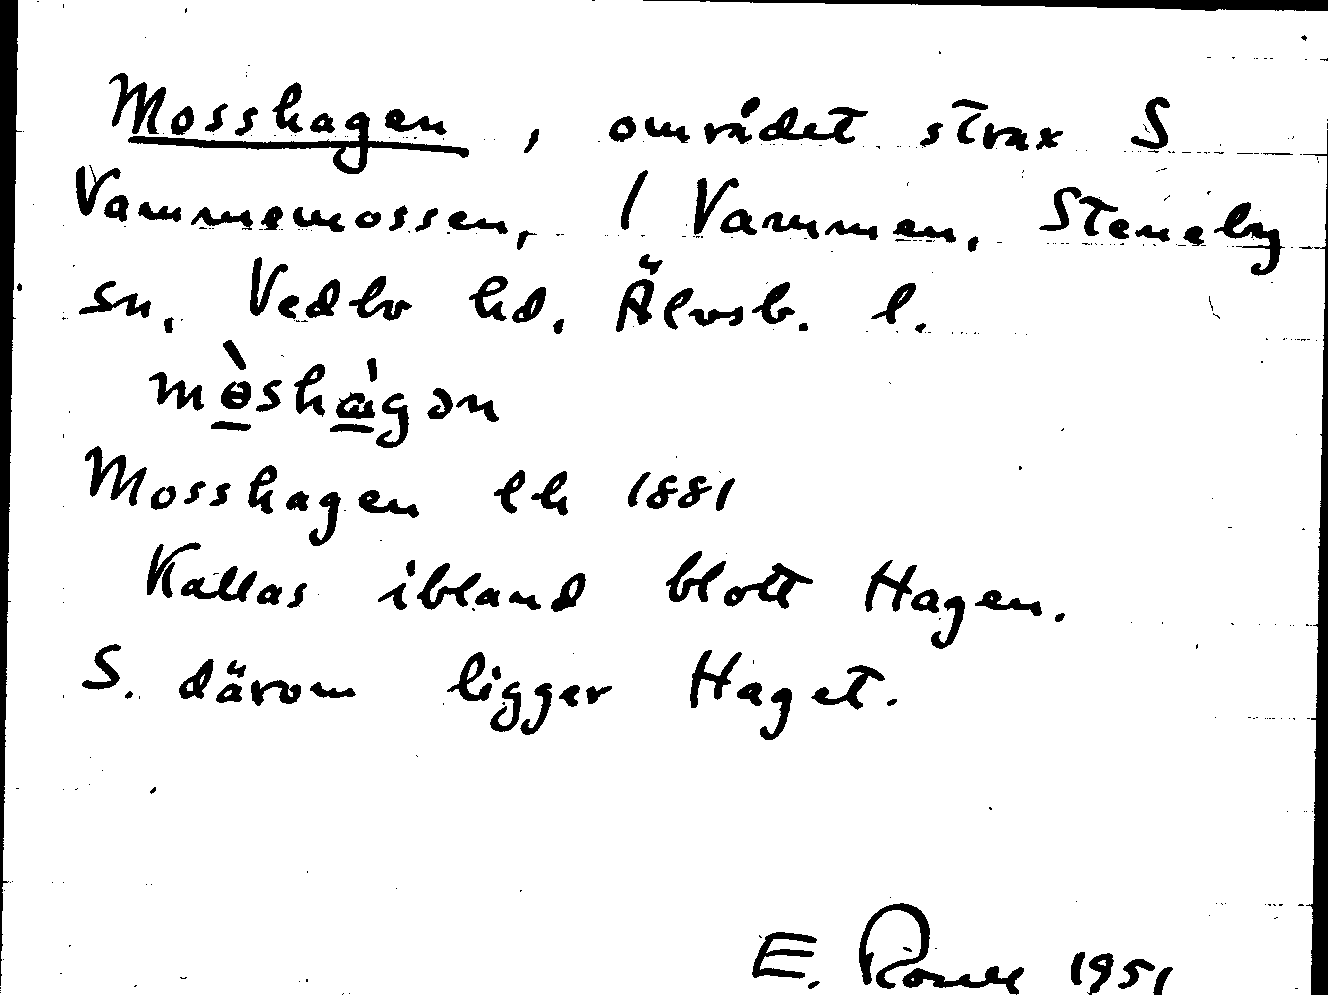 Mosshagen, området strax S
Vammemossen, 1 Vammen, Steneby
sn, Vedbo hd, Älvsb. l.
mòshágən
Mosshagen lh 1881
Kallas ibland blott Hagen.
S. därom ligger Haget.
E. 1951